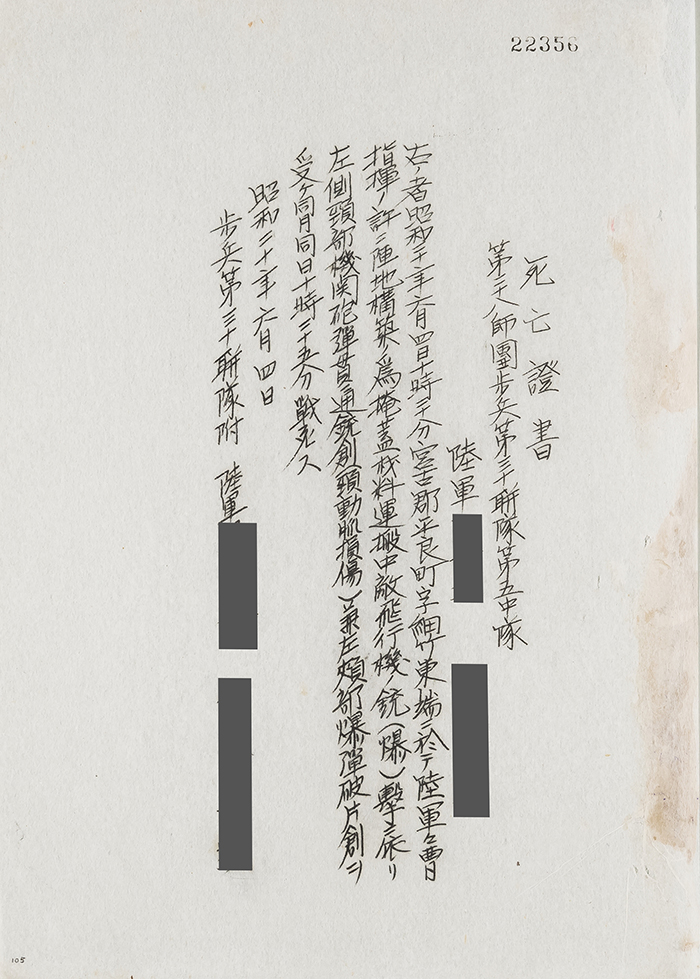 22356
死亡證書
第二十八師團歩兵第三十聯隊第五中隊
陸軍
右ノ者昭和二十年六月四日十時三十分宮古郡平良町字細竹東端ニ於テ陸軍々曹
指揮ノ許ニ陣地構築ノ爲掩蓋材料運搬中敵飛行機ノ銃(爆)撃ニ依リ
左側頸部機関砲彈貫通銃創(頸動脈損傷)兼左頬部爆彈破片創ヲ
受ケ同月同日十時三十五分戰死ス
昭和二十年六月四日
歩兵第三十聯隊附 陸軍
105